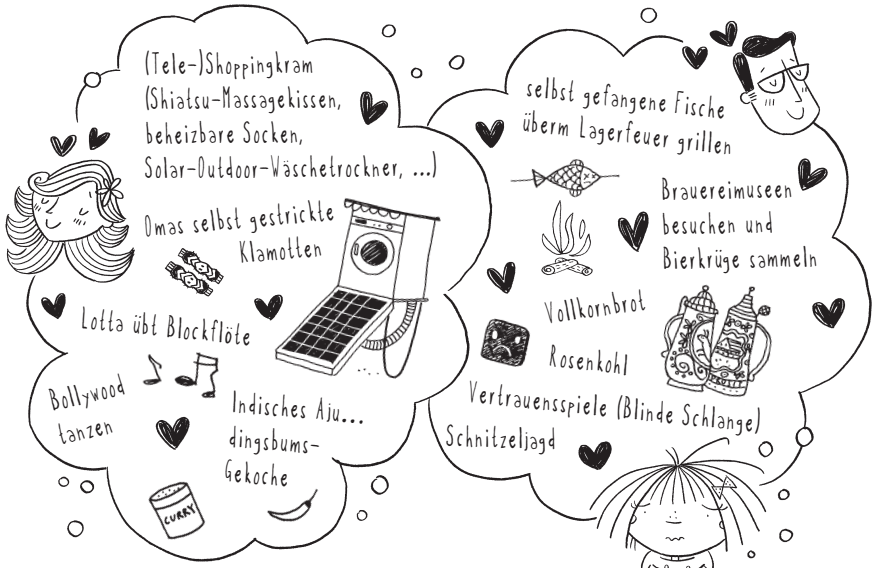 (Tele-)Shoppingkram
(Shiatsu-Massagekissen,
beheizbare Socken,
Solar-Outdoor-Wäschetrockner, ...)
Omas selbst gestrickte
Klamotten
Lotta übt Blockflöte
Bollywood
tanzen
Indisches Aju...
dingsbums-
Gekoche
CURRY
selbst gefangene Fische
überm Lagerfeuer grillen
Brauereimuseen
besuchen und
Bierkrüge sammeln
Vollkornbrot
Rosenkohl
Vertrauensspiele (Blinde Schlange)
Schnitzeljagd